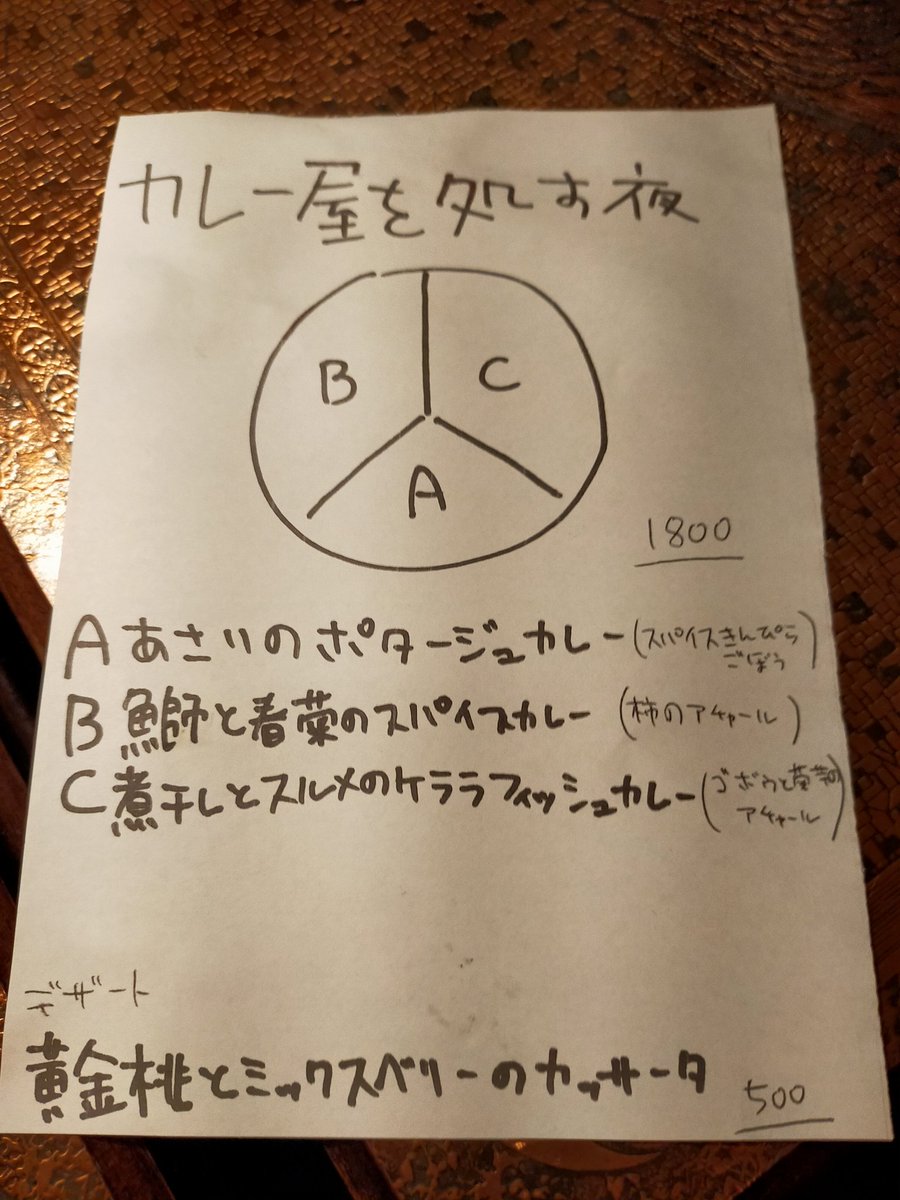 カレー屋を処す夜
B C
A
1800
A あさりのポタージュカレー(スパイスきんぴら
ごぼう)
B 鰤と春菊のスパイスカレー (柿のアチャール)
C 煮干しとスルメのケララフィッシュカレー(ゴボウと
アチャール)
デザート
黄金桃とミックスベリーのカッサータ
500